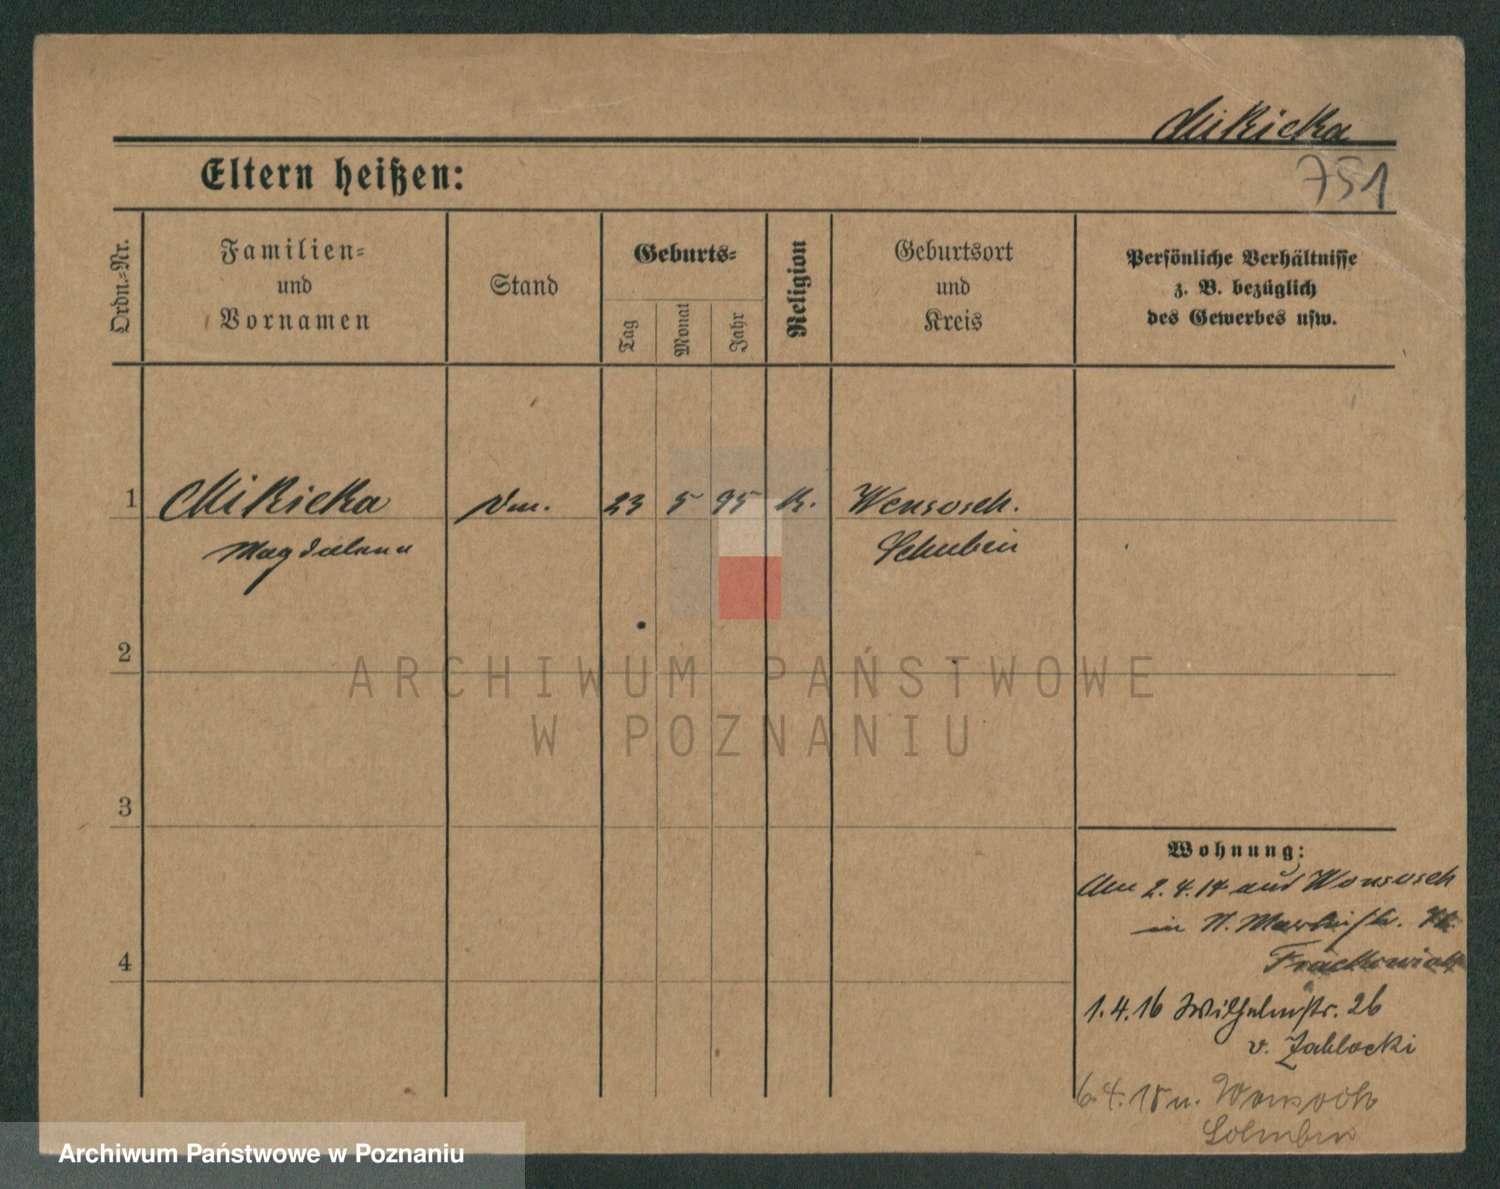 Mikicka
751
Eltern heißen:
Ordn.-Nr.
Familien-
und
Vornamen
Stand
Geburts-
Tag
Monat
Jahr
Religion
Geburtsort
und
Kreis
Persönliche Verhältnisse
z. B. bezüglich
des Gewerbes usw.
1 Mikicka Dm. 23 5 95 K. Wensosch.
Magdalena Schubin
2
3
4
Wohnung:
Am 2.4.14 aus Wonsosch
in N.
Frackowiak
1.4.16 Wilhelmstr. 26
v. Zablocki
6.4.18 n. Wonsosch
Schubin
ARCHIWUM PAŃSTWOWE
W POZNANIU
Archiwum Państwowe w Poznaniu